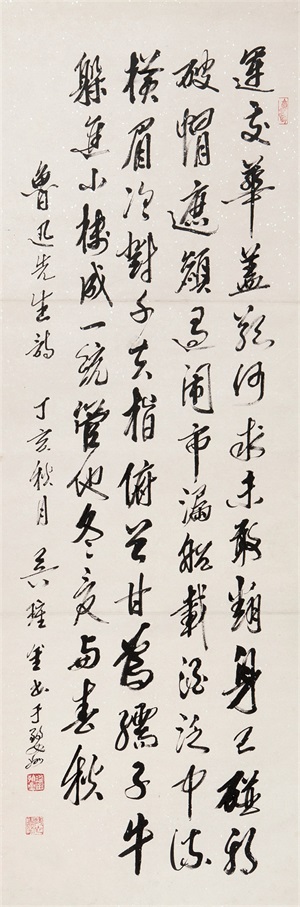 運交華盖欲何求未敢翻身已碰头
破帽遮顏過闹市漏船載酒泛中流
横眉冷對千夫指俯首甘為孺子牛
躲進小楼成一統管他冬夏与春秋
魯迅先生詩 丁亥秋月 书于